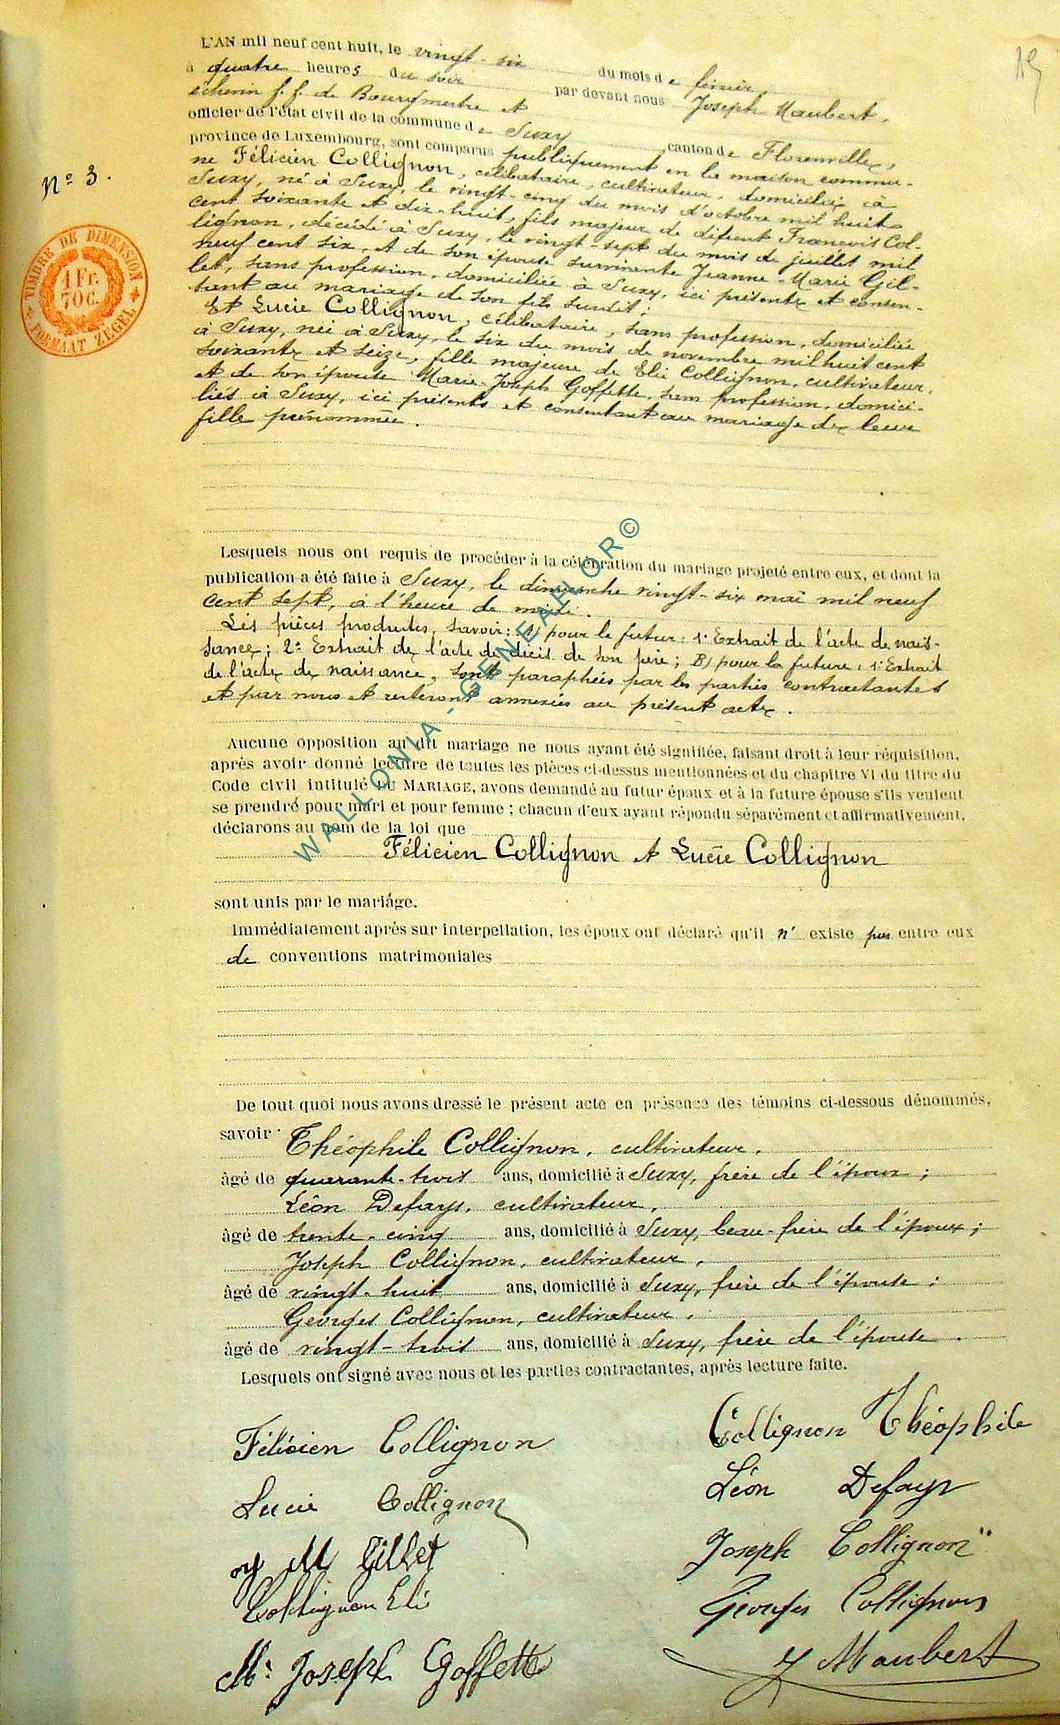 19
L'AN mil neuf cent huit, le vingt-six du mois de février,
à quatre heures du soir par devant nous Joseph Maubert,
échevin f.f. de Bourgmestre et
officier de l'état civil de la commune de Suxy, canton de Florenville,
province de Luxembourg, sont comparus publiquement en la maison commu-
N° 3.
ne Félicien Collignon, célibataire, cultivateur, domicilié à
Suxy, né à Suxy, le vingt-cinq du mois d'octobre mil huit
cent soixante et dix-huit, fils majeur de défunt François Col-
lignon, décédé à Suxy, le vingt-sept du mois de juillet mil
neuf cent six, et de son épouse survivante Jeanne-Marie Gil-
let, sans profession, domiciliée à Suxy, ici présente et consen-
tant au mariage de son fils susdit;
Et Lucie Collignon, célibataire, sans profession, domiciliée
à Suxy, née à Suxy, le six du mois de novembre mil huit cent
soixante et seize, fille majeure de Eli Collignon, cultivateur,
et de son épouse Marie-Joseph Goffette, sans profession, domici-
liés à Suxy, ici présents et consentant au mariage de leur
fille prénommée.
TIMBRE DE DIMENSION
1 Fr.
70 C.
FORMAAT ZEGEL
Lesquels nous ont requis de procéder à la célébration du mariage projeté entre eux, et dont la
publication a été faite à Suxy, le dimanche vingt-six mai mil neuf
cent sept, à l'heure de midi.
Les pièces produites, savoir: A) pour le futur: 1° Extrait de l'acte de nais-
sance; 2° Extrait de l'acte de décès de son père; B) pour la future: 1° Extrait
de l'acte de naissance, sont paraphées par les parties contractantes
et par nous et resteront annexées au présent acte.
Aucune opposition au dit mariage ne nous ayant été signifiée, faisant droit à leur réquisition,
après avoir donné lecture de toutes les pièces ci-dessus mentionnées et du chapitre VI du titre du
Code civil intitulé DU MARIAGE, avons demandé au futur époux et à la future épouse s'ils veulent
se prendre pour mari et pour femme; chacun d'eux ayant répondu séparément et affirmativement,
déclarons au nom de la loi que
Félicien Collignon et Lucie Collignon
sont unis par le mariage.
Immédiatement après sur interpellation, les époux ont déclaré qu'il n' existe pas entre eux
de conventions matrimoniales
De tout quoi nous avons dressé le présent acte en présence des témoins ci-dessous dénommés,
savoir: Théophile Collignon, cultivateur,
âgé de quarante-trois ans, domicilié à Suxy, frère de l'époux;
Léon Defays, cultivateur,
âgé de trente-cinq ans, domicilié à Suxy, beau-frère de l'époux;
Joseph Collignon, cultivateur,
âgé de vingt-huit ans, domicilié à Suxy, frère de l'épouse;
Georges Collignon, cultivateur,
âgé de vingt-trois ans, domicilié à Suxy, frère de l'épouse.
Lesquels ont signé avec nous et les parties contractantes, après lecture faite.
Félicien Collignon
Collignon Théophile
Lucie Collignon
Léon Defays
M Gillet
Joseph Collignon
Collignon Eli
Georges Collignon
Me Joseph Goffette
J Maubert
WALLONIA - GENEAFLOR©